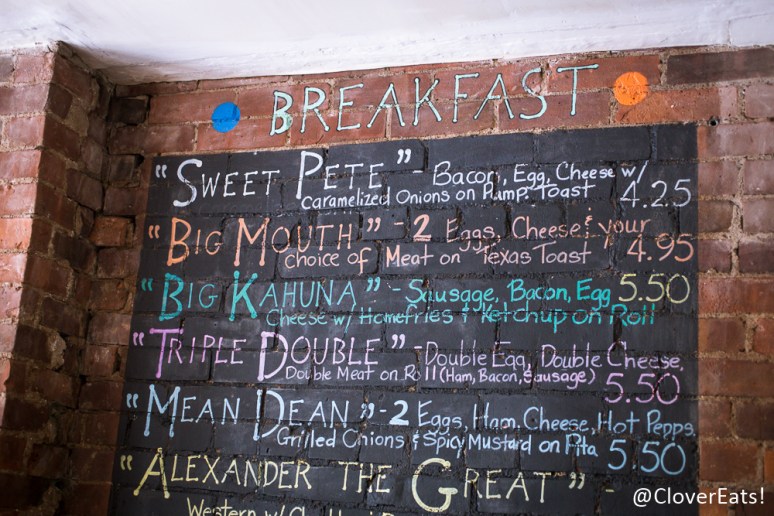 BREAKFAST
"SWEET PETE" - Bacon, Egg, Cheese w/
Caramelized Onions on Pump. Toast 4.25
"BIG MOUTH" - 2 Eggs, Cheese & your
choice of Meat on Texas Toast 4.95
"BIG KAHUNA" - Sausage, Bacon, Egg 5.50
Cheese w/ Homefries & Ketchup on Roll
"TRIPLE DOUBLE" - Double Egg, Double Cheese,
Double Meat on Roll (Ham, Bacon, & Sausage) 5.50
"MEAN DEAN" - 2 Eggs, Ham, Cheese, Hot Pepps,
Grilled Onions & Spicy Mustard on Pita 5.50
"ALEXANDER THE GREAT" -
Western w/
@CloverEats!